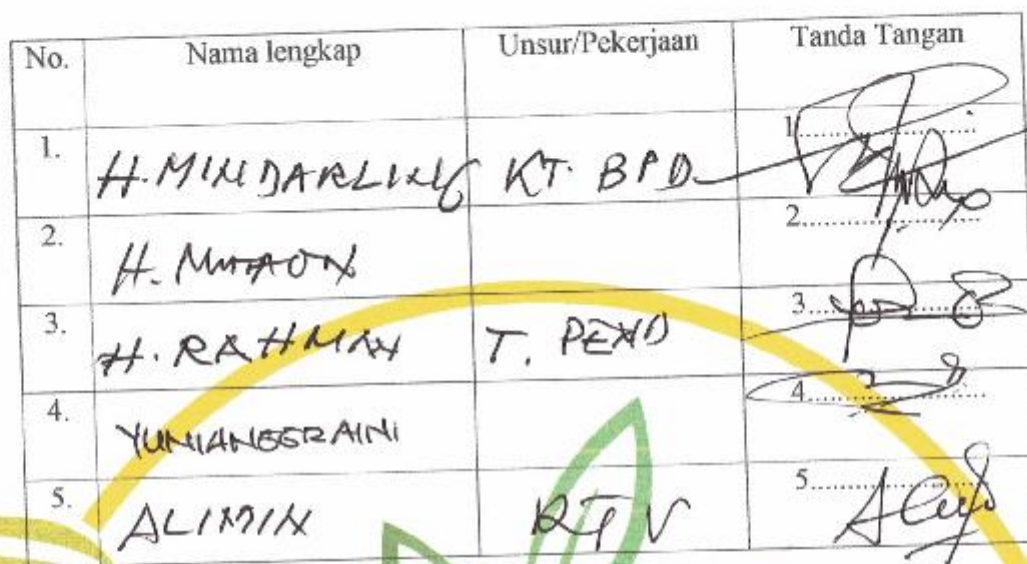 No. Nama lengkap Unsur/Pekerjaan Tanda Tangan
1. H. MINDARLING KT. BPD 1
2. H. 2
3. H. RAHMAN T. PEND 3
4. YUNIANGGRAINI 4
5. ALIMIN RT V 5